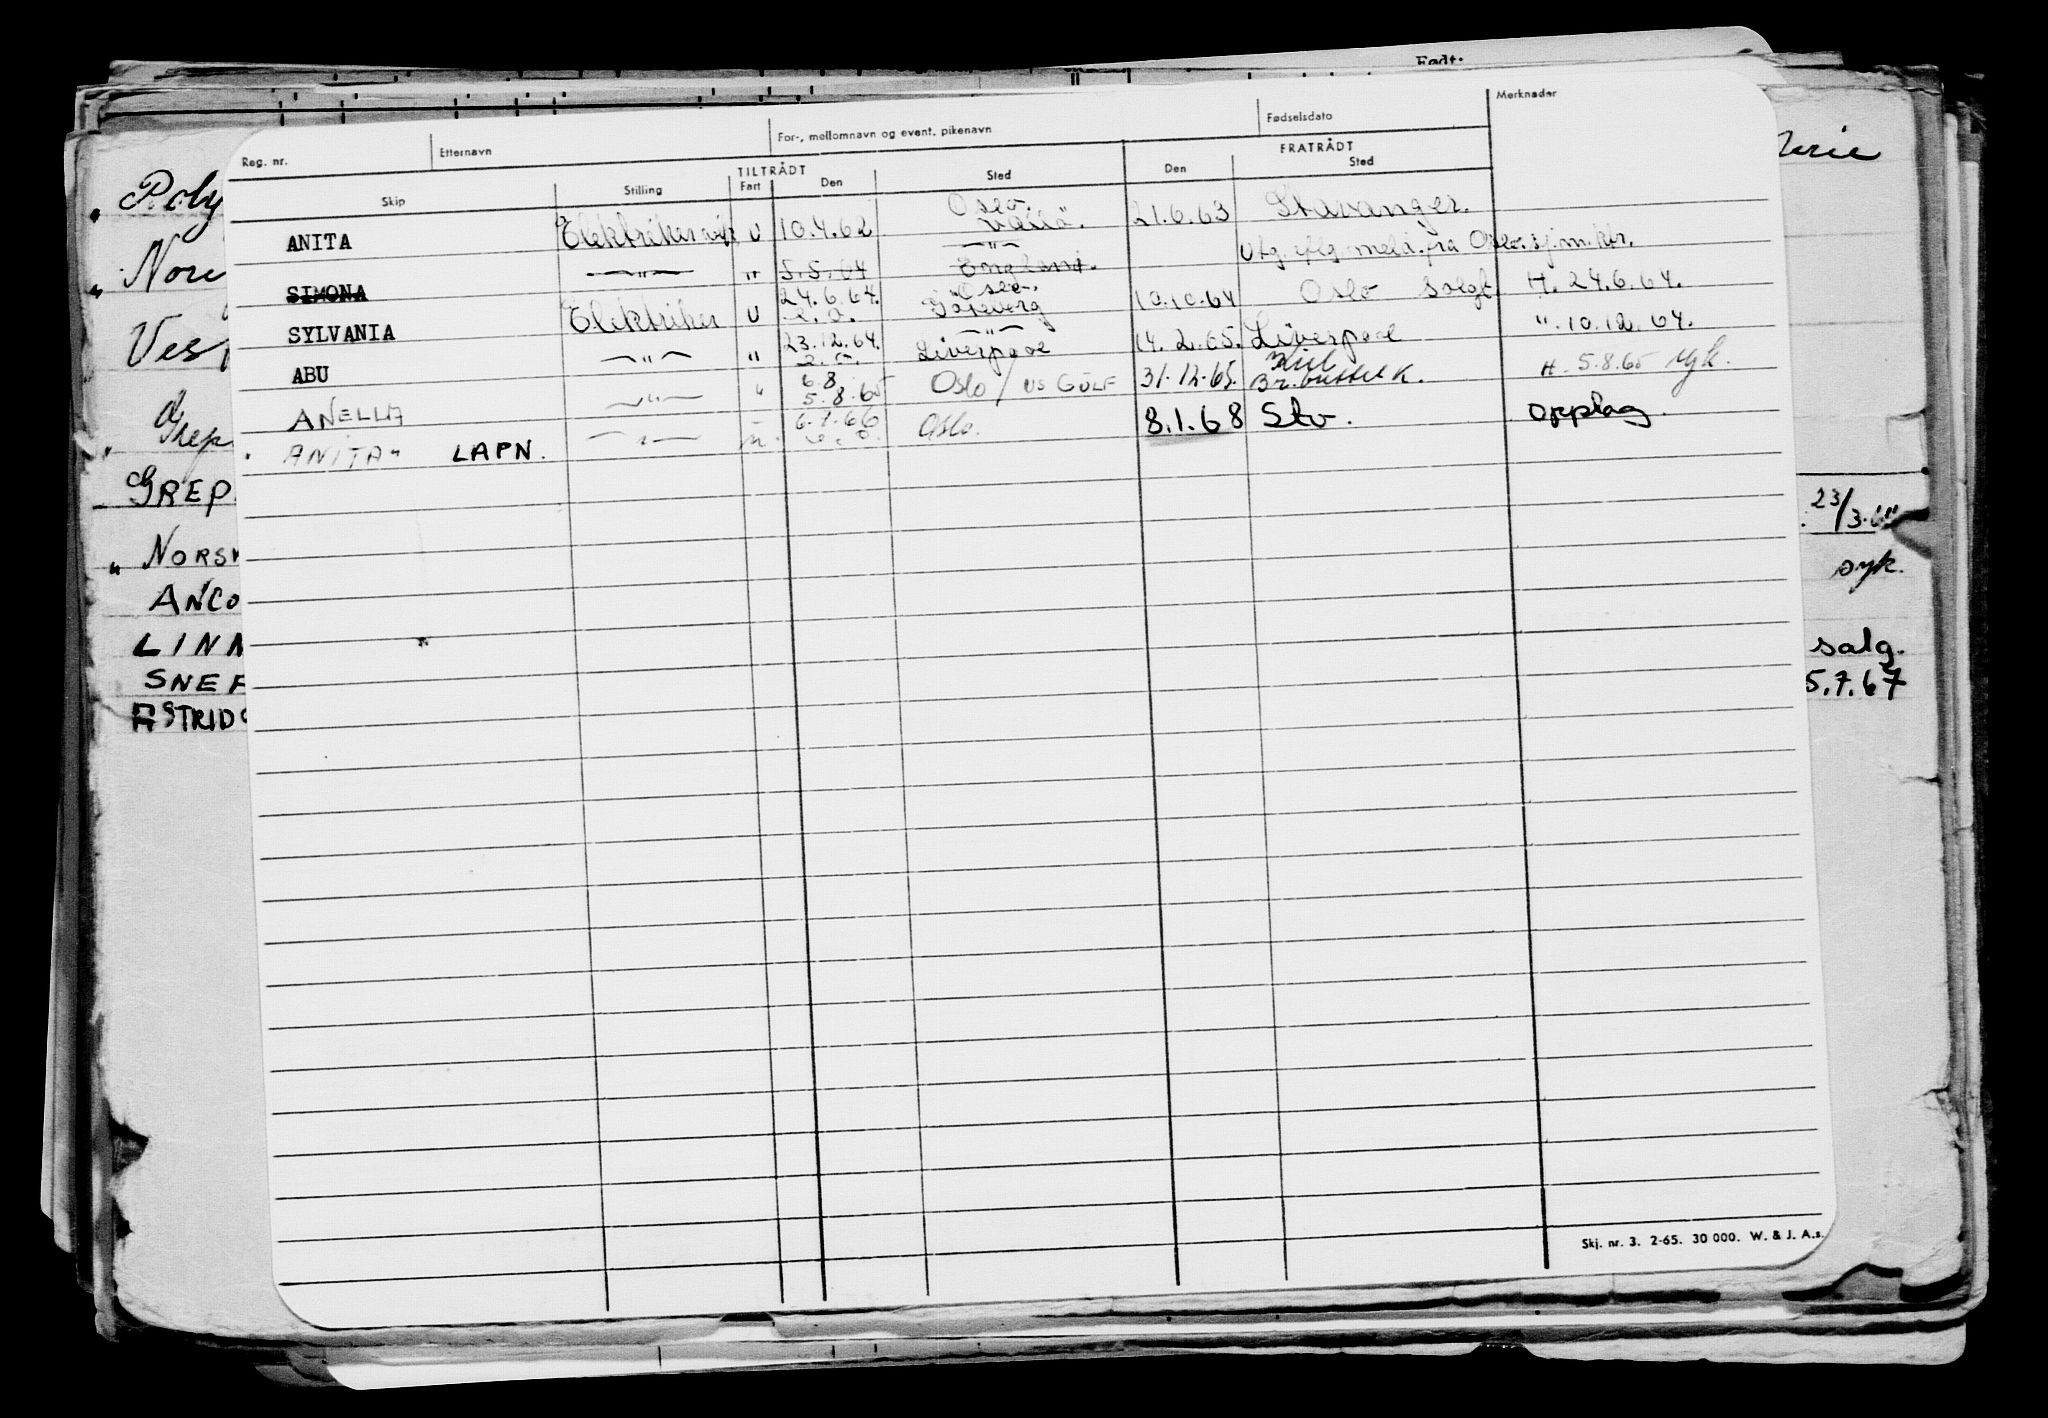 Født:
Reg. nr. Etternavn For-, mellomnavn og event. pikenavn Fødselsdato Merknader
TILTRÅDT FRATRÅDT
Skip Stilling Fart Den Sted Den Sted
ANITA U 10.4.62 Oslo. 21.6.63 Stavanger.
SIMONA —"— " 5.5.64 England. Utg. iflg. meld. fra
SYLVANIA Elektriker U 24.6.64. Oslo. Göteborg 10.10.64 Oslo Solgt. H. 24.6.64.
ABU —"— " 23.12.64. —"— Liverpool 14.2.65. Liverpool ". 10.12.64.
ANELLA —"— " 6.8 5.8.65 Oslo / US GULF 31.12.65. Kiel H. 5.8.65 syk.
" ANITA" LAPN. —"— 6.7.66 Oslo. 8.1.68 Stv. opplag.
Skj. nr. 3. 2-65. 30 000. W. & J. A.s.
" Poly
" Nore
Ves
" Grep
GREP
" NORS
ANCO
LINN
SNEF
ASTRID
23/3.6
syk.
salg.
5.7.67